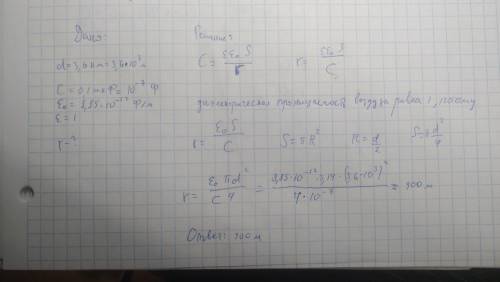 Дано:
d = 3,6 км = 3,6·10³ м
C = 0,1 мкФ = 10⁻⁷ Ф
ε₀ = 8,85·10⁻¹² Ф/м
ε = 1
r - ?
Решение:
C = εε₀S / r    r = εε₀S / C
диэлектрическая проницаемость воздуха равна 1, поэтому
r = ε₀S / C    S = πR²    R = d/2
r = ε₀πd² / C4 = 8,85·10⁻¹²·3,14·(3,6·10³)² / 4·10⁻⁷ = 900 м
Ответ: 900 м